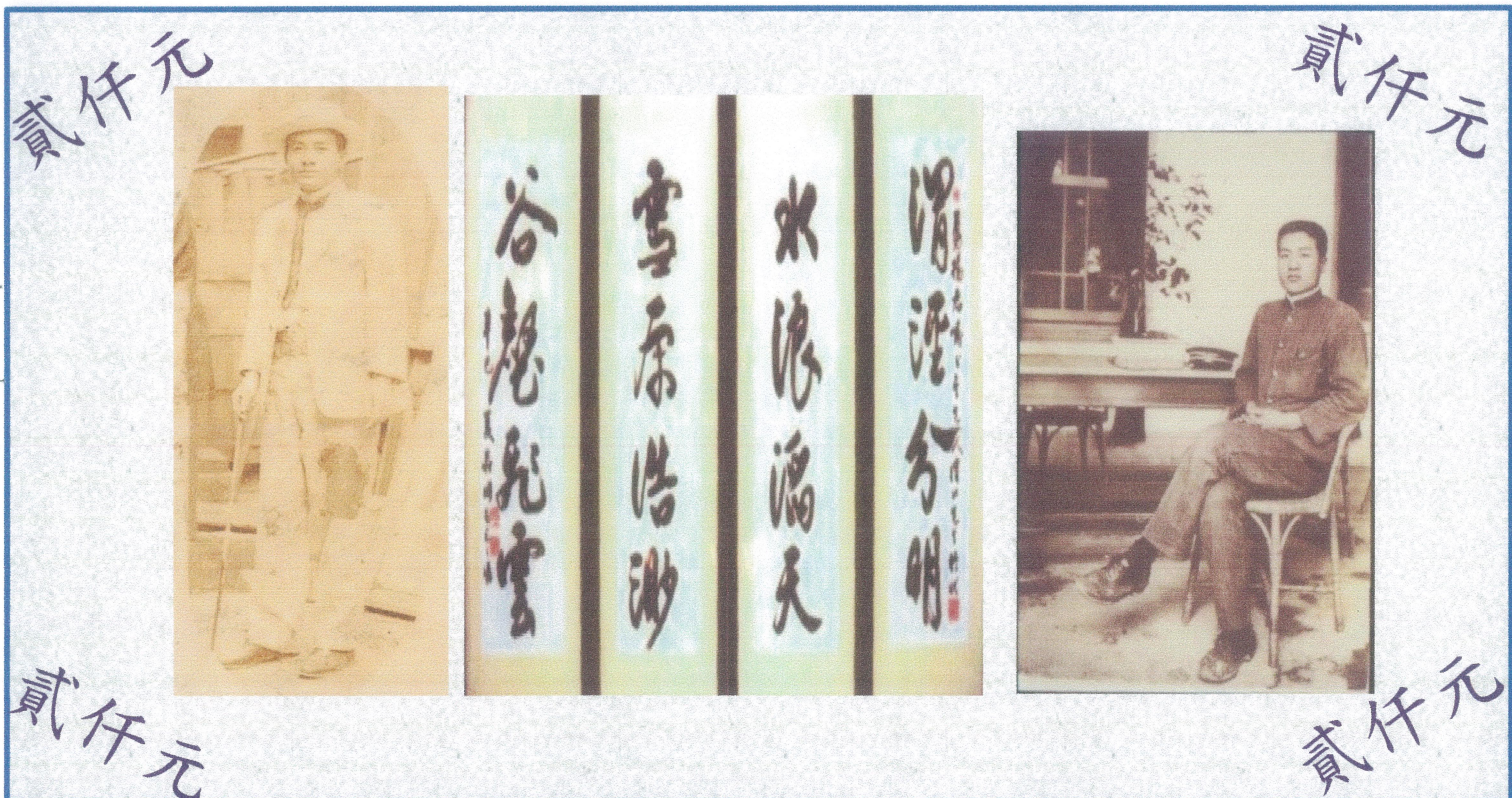 貳仟元
貳仟元
渭涇分明
水浪滔天
雪原浩渺
谷壑飛雲
貳仟元
貳仟元